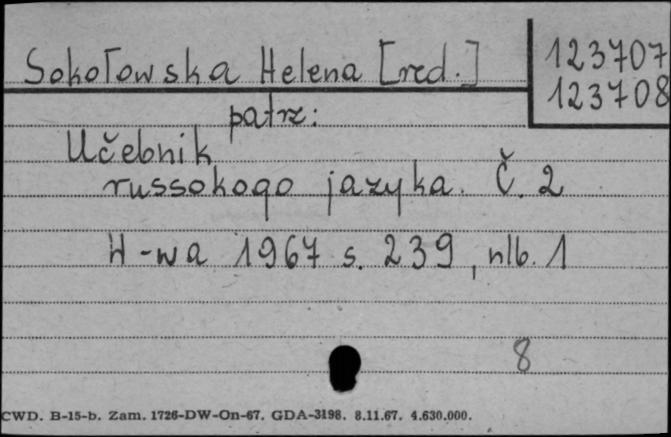 Sokołowska Helena [red.]
123707
123708
patrz:
Učebnik
russokogo jazyka. Č. 2
W-wa 1967 s. 239, nlb. 1
8
CWD. B-15-b. Zam. 1726-DW-On-67. GDA-3198. 8.11.67. 4.630.000.